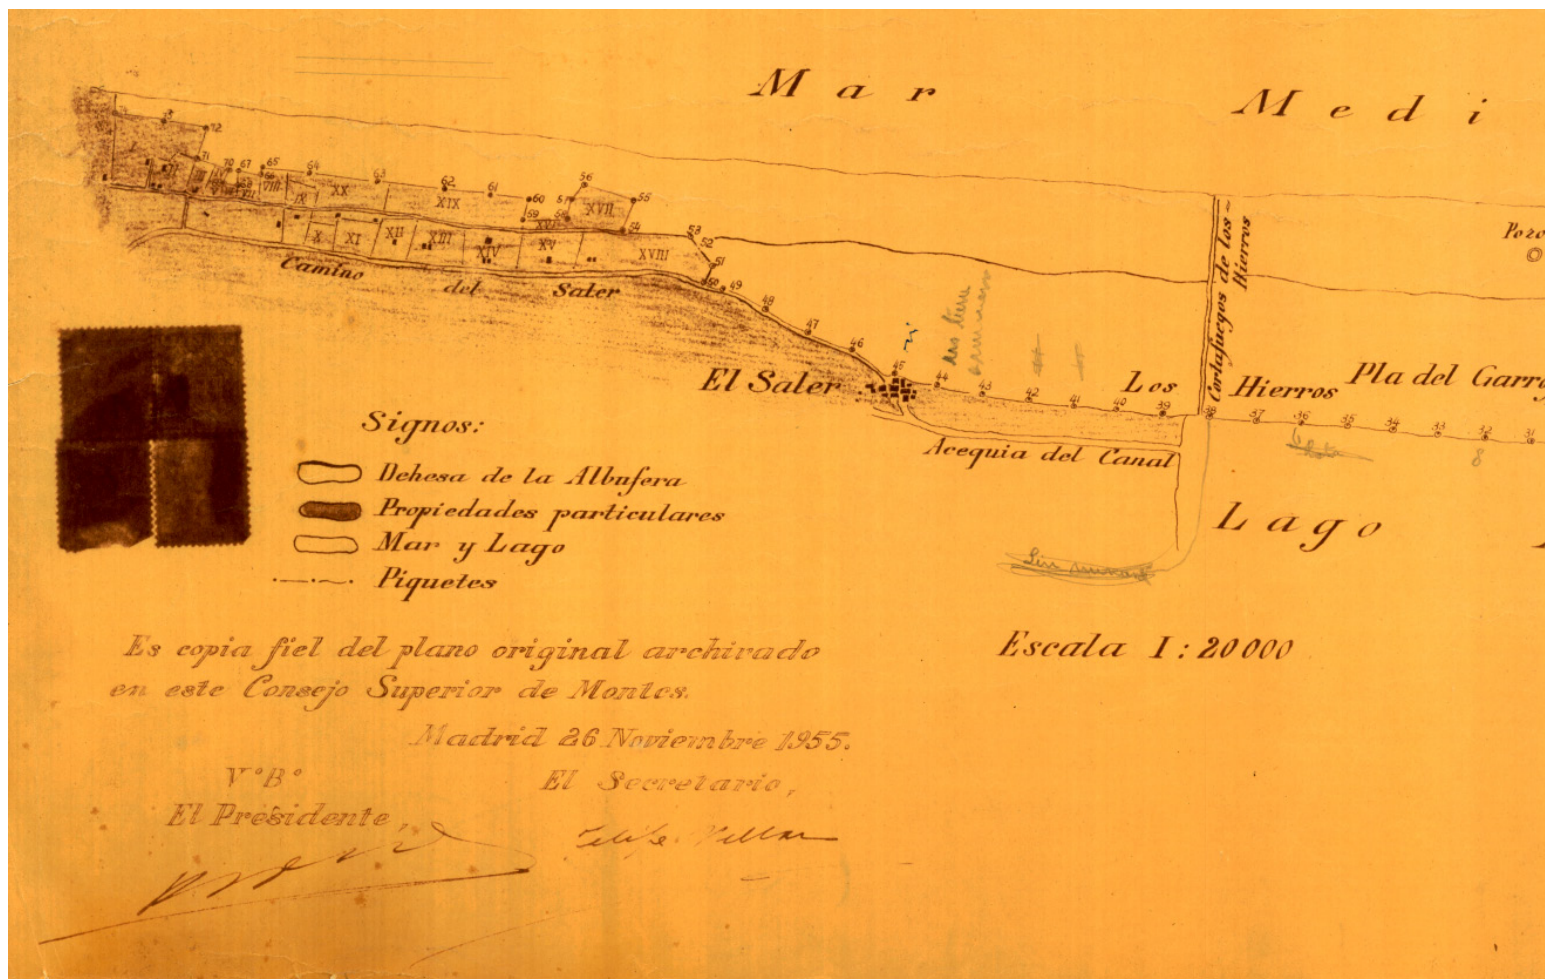 Mar
Medi
73
72
71
70
67
65
64
63
62
61
60
56
55
I
II
III
VIII
IX
XX
XIX
XVII
59
54
53
52
51
50
49
48
47
46
45
44
43
42
41
40
39
38
37
36
35
34
33
32
31
X
XI
XII
XIII
XIV
XV
XVIII
Camino del Saler
Cortafuegos de los Hierros
Pozo
El Saler
Los Hierros
Pla del Garro
Acequia del Canal
8
Lago
Signos:
Dehesa de la Albufera
Propiedades particulares
Mar y Lago
Piquetes
Escala 1:20000
Es copia fiel del plano original archivado
en este Consejo Superior de Montes.
Madrid 26 Noviembre 1955.
VºBº
El Presidente,
El Secretario,